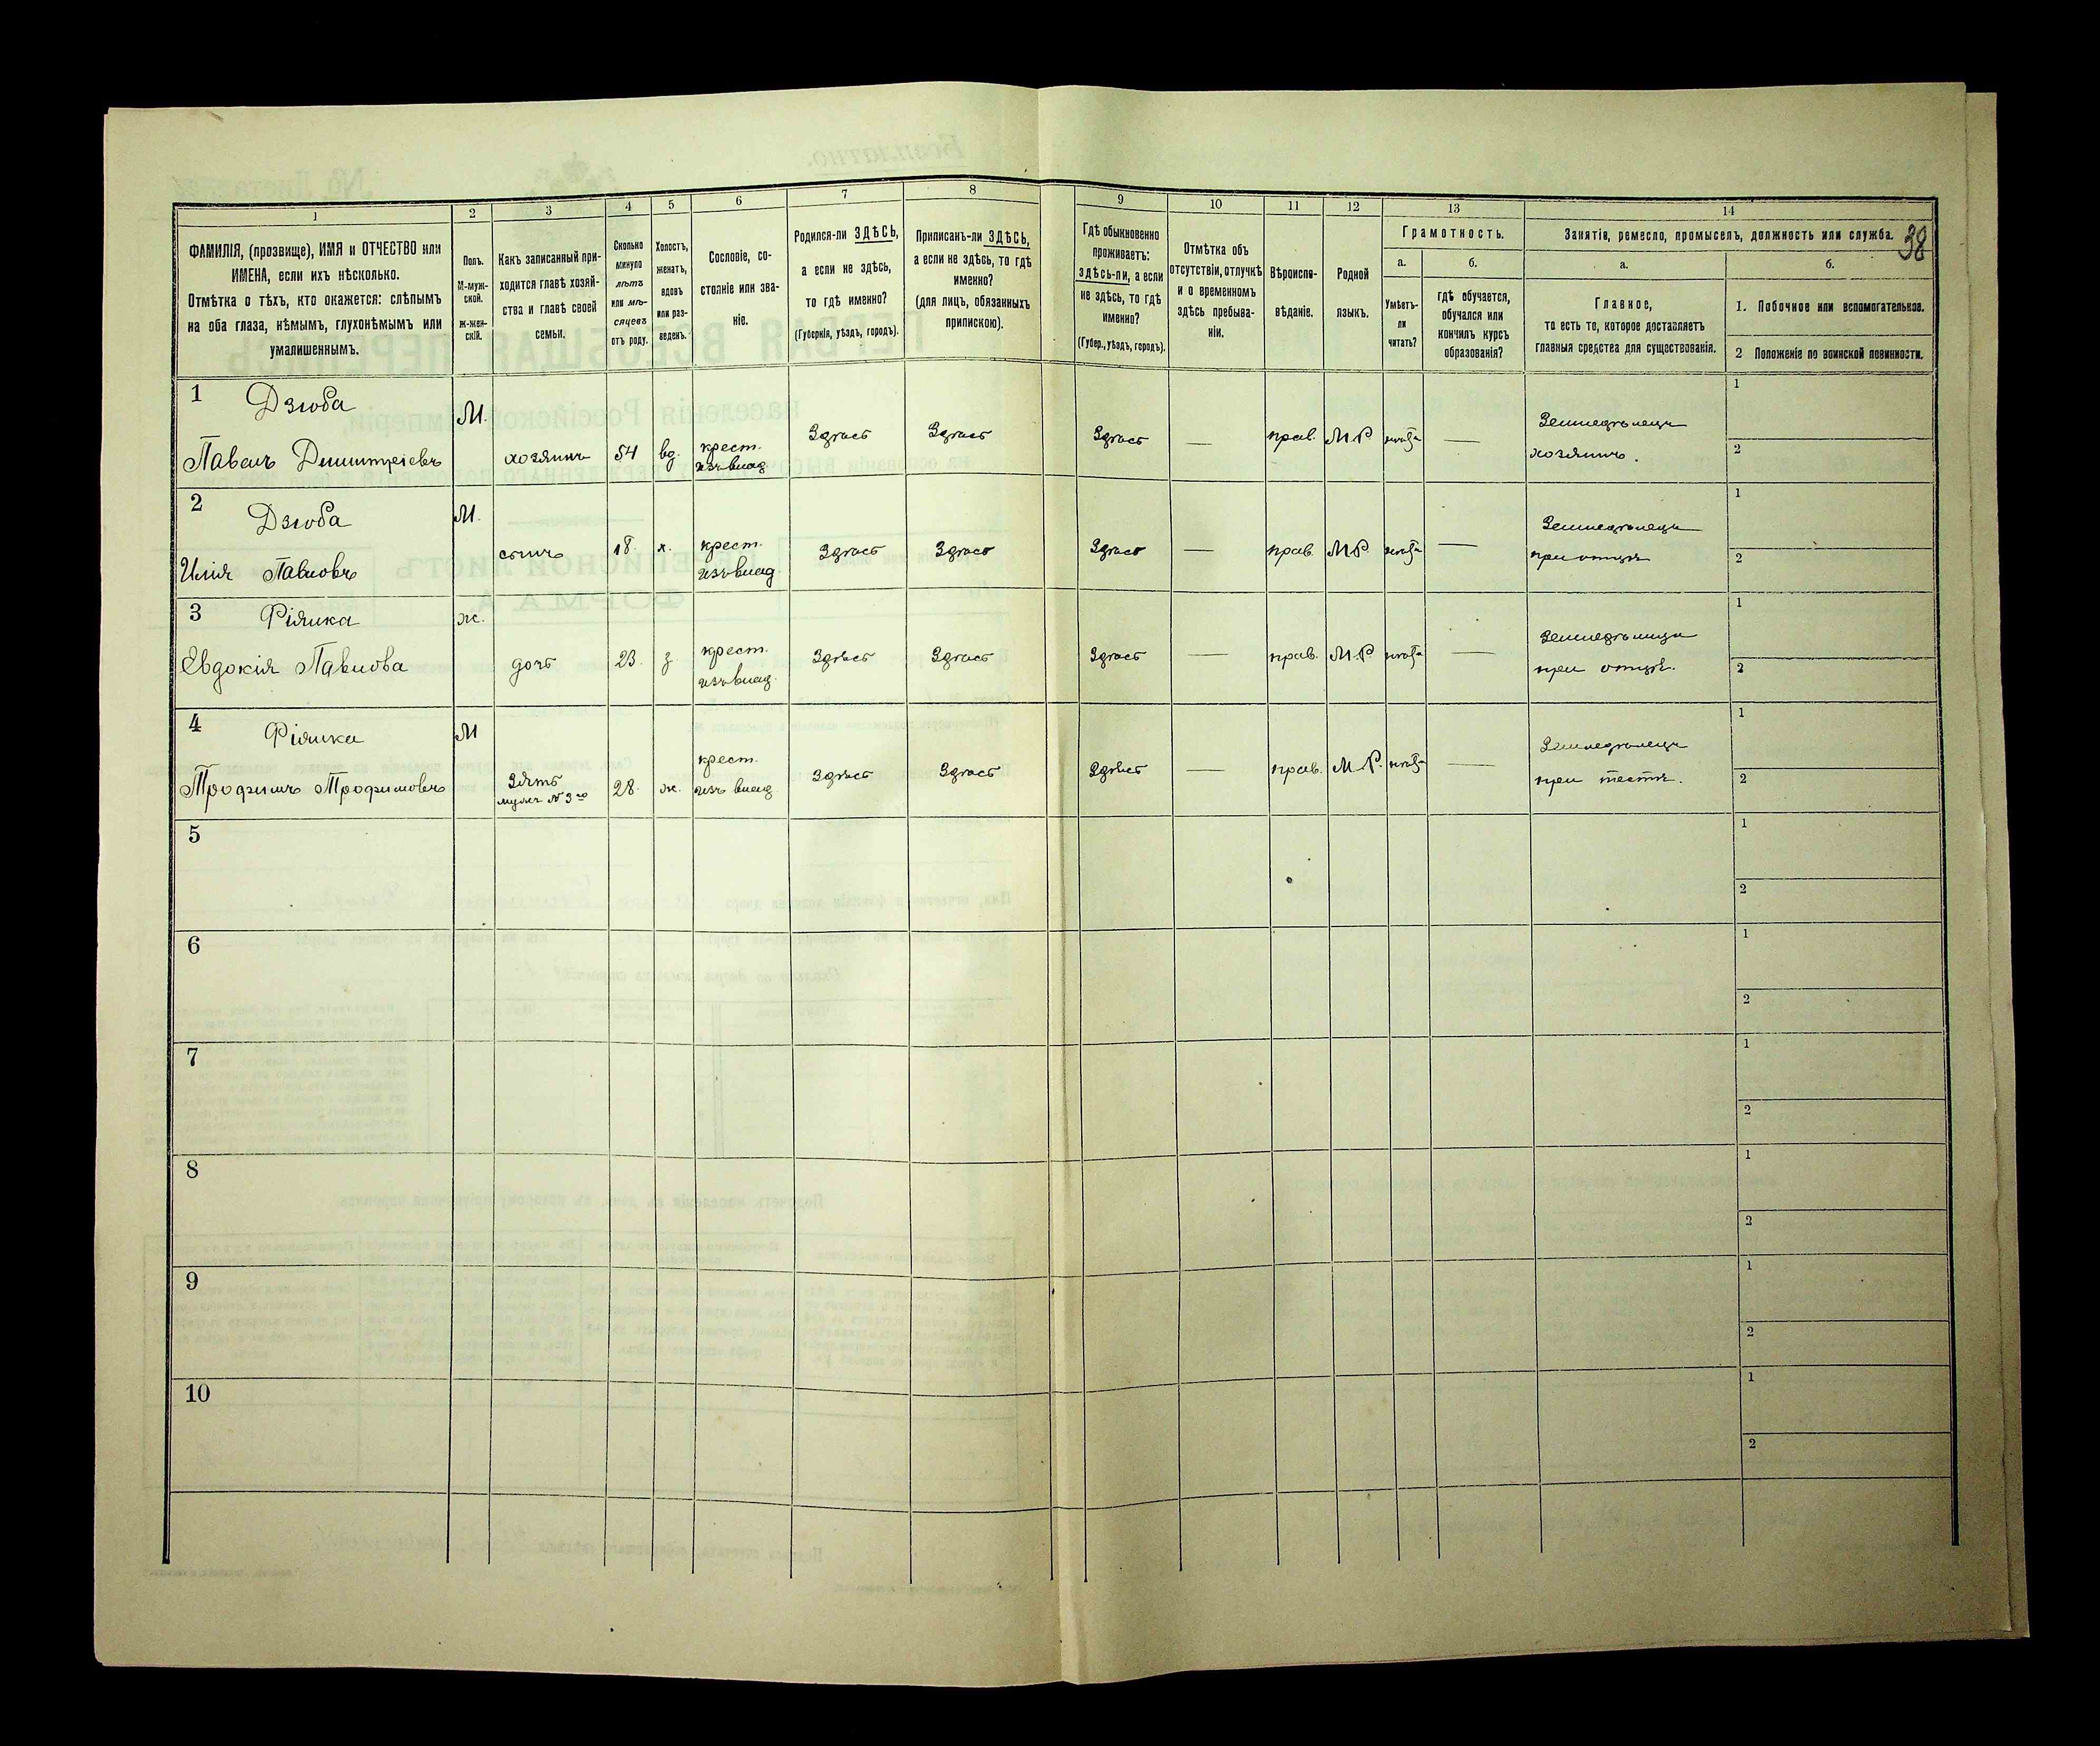 38
1 2 3 4 5 6 7 8 9 10 11 12 13 14
ФАМИЛІЯ, (прозвище), ИМЯ и ОТЧЕСТВО или
ИМЕНА, если ихъ нѣсколько.
Отмѣтка о тѣхъ, кто окажется: слѣпымъ
на оба глаза, нѣмымъ, глухонѣмымъ или
умалишеннымъ.
Полъ.
М-муж-
ской.
Ж-жен-
скій.
Какъ записанный при-
ходится главѣ хозяй-
ства и главѣ своей
семьи.
Сколько
минуло
лѣтъ
или мѣ-
сяцевъ
отъ роду.
Холостъ,
женатъ,
вдовъ
или раз-
веденъ.
Сословіе, со-
стояніе или зва-
ніе.
Родился-ли ЗДѢСЬ,
а если не здѣсь,
то гдѣ именно?
(Губернія, уѣздъ, городъ).
Приписанъ-ли ЗДѢСЬ,
а если не здѣсь, то гдѣ
именно?
(для лицъ, обязанныхъ
припискою).
Гдѣ обыкновенно
проживаетъ:
ЗДѢСЬ-ли, а если
не здѣсь, то гдѣ
именно?
(Губер., уѣздъ, городъ).
Отмѣтка объ
отсутствіи, отлучкѣ
и о временномъ
здѣсь пребыва-
ніи.
Вѣроиспо-
вѣданіе.
Родной
языкъ.
Грамотность.
а.
Умѣетъ-
ли
читать?
б.
гдѣ обучается,
обучался или
кончилъ курсъ
образованія?
Занятія, ремесло, промыселъ, должность или служба.
а.
Главное,
то есть то, которое доставляетъ
главныя средства для существованія.
б.
1. Побочное или вспомогательное.
2 Положеніе по воинской повинности.
1 Дзюба
Павелъ Димитріевъ
М.
хозяинъ
54
вд.
крест.
изъ влад.
Здѣсь
Здѣсь
Здѣсь
—
прав.
М.Р
—
Земледѣлецъ
хозяинъ.
1
2
2 Дзюба
Илія Павловъ
М.
сынъ
18.
х.
крест.
изъ влад
Здѣсь
Здѣсь
Здѣсь
—
прав.
М.Р
—
Земледѣлецъ
при отцѣ
1
2
3 Фіялка
Евдокія Павлова
ж.
дочь
23.
з.
крест.
изъ влад.
Здѣсь
Здѣсь
Здѣсь
—
прав.
М.Р
—
при отцѣ.
1
2
4 Фіялка
Трофимъ Трофимовъ
М
Зять
мужъ № 3го
28.
ж.
крест.
изъ влад
Здѣсь
Здѣсь
Здѣсь
—
прав.
М.Р.
—
Земледѣлецъ
при тестѣ.
1
2
5
1
2
6
1
2
7
1
2
8
1
2
9
1
2
10
1
2